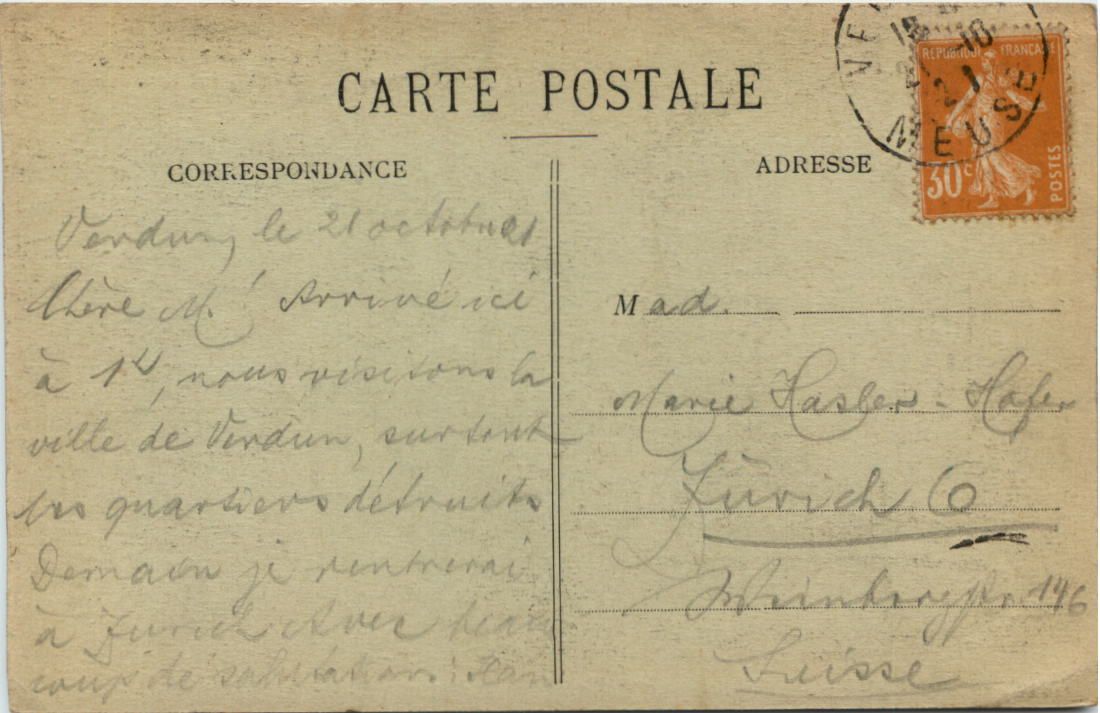 CARTE POSTALE
CORRESPONDANCE
Verdun, le 21 octobre 21
Chère M.! Arrivé ici
à 1h, nous visitons la
ville de Verdun, surtout
les quartiers détruits
Demain je rentrerai
à Zurich Avec beau
coup de salutations:
ADRESSE
Mad.
Marie Hasler-Hofer
Zürich 6
Weinbergstr. 146
Suisse
REPUBLIQUE FRANÇAISE
30c
POSTES
10
21
MEUSE